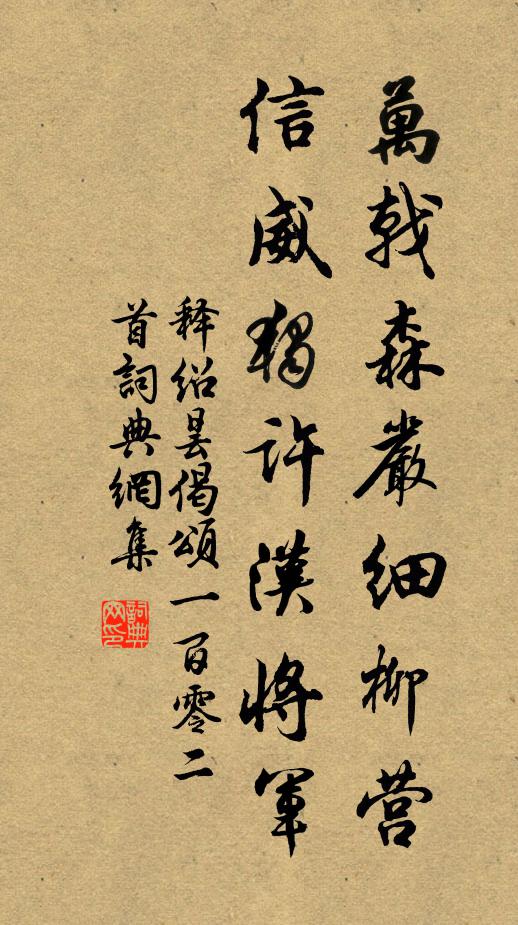 萬戟森嚴細柳营
信威獨許漢將軍
释绍昙偈頌一百零二
首詞典網集
詞典网印